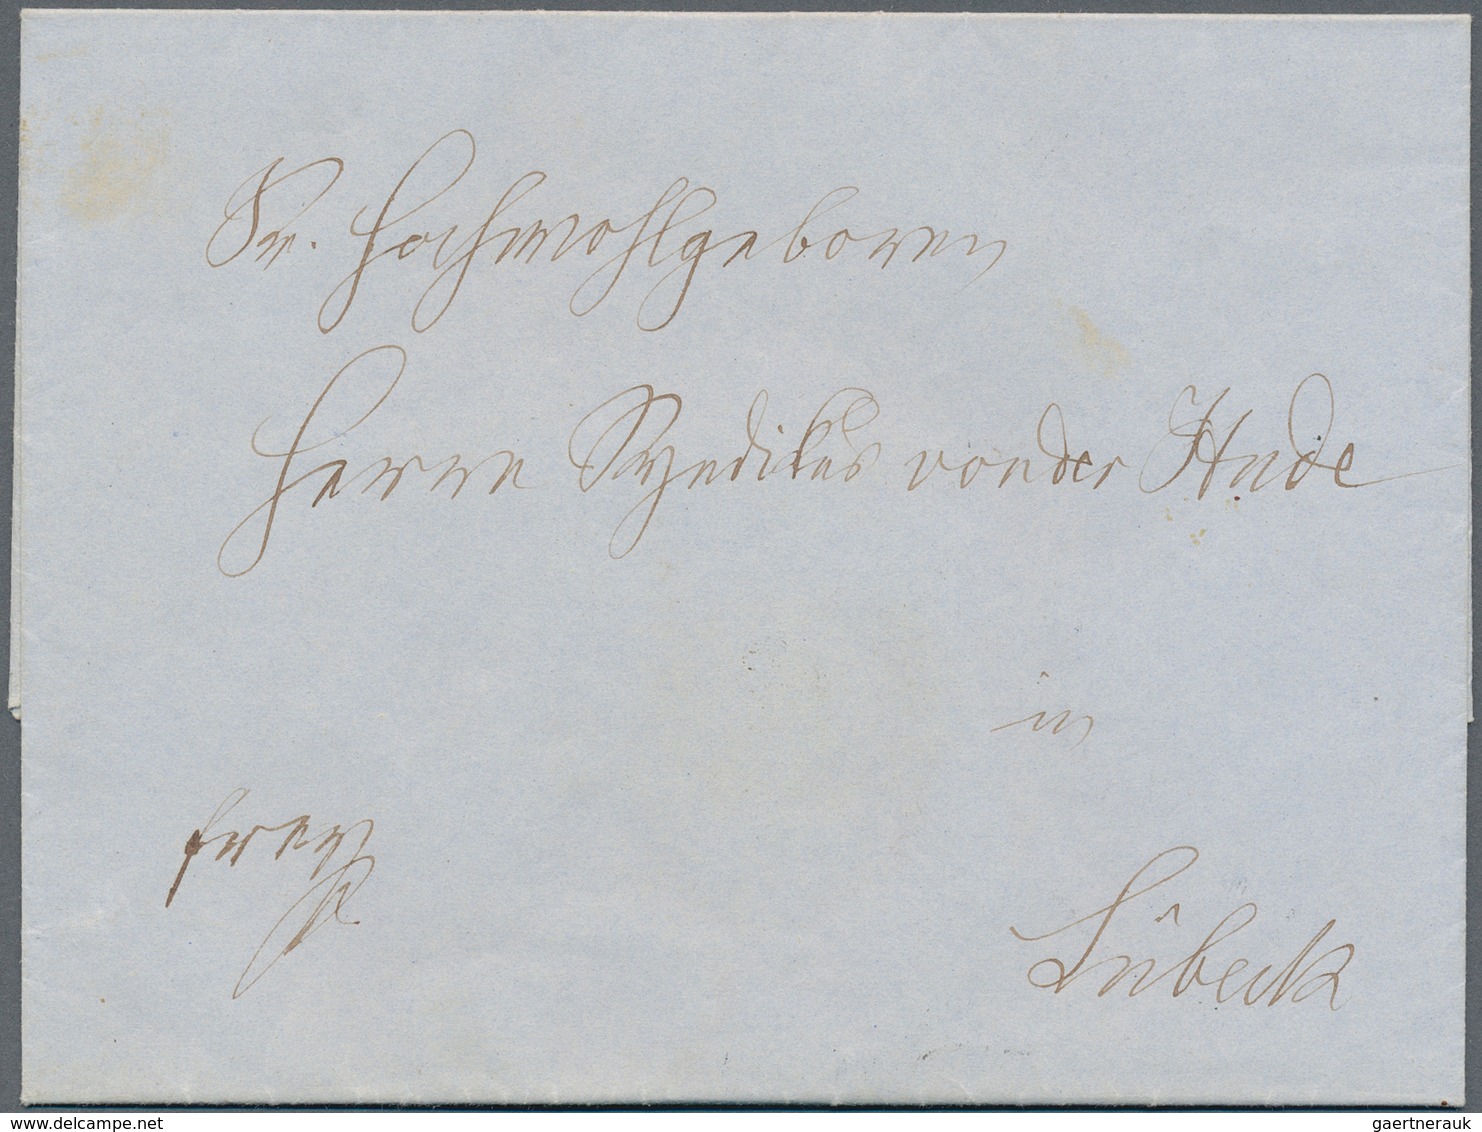 Sr. Hochwohlgeboren
Herrn Syndikus von der Hude
in
frey
Lübeck
© www.delcampe.net
gaertnerauk